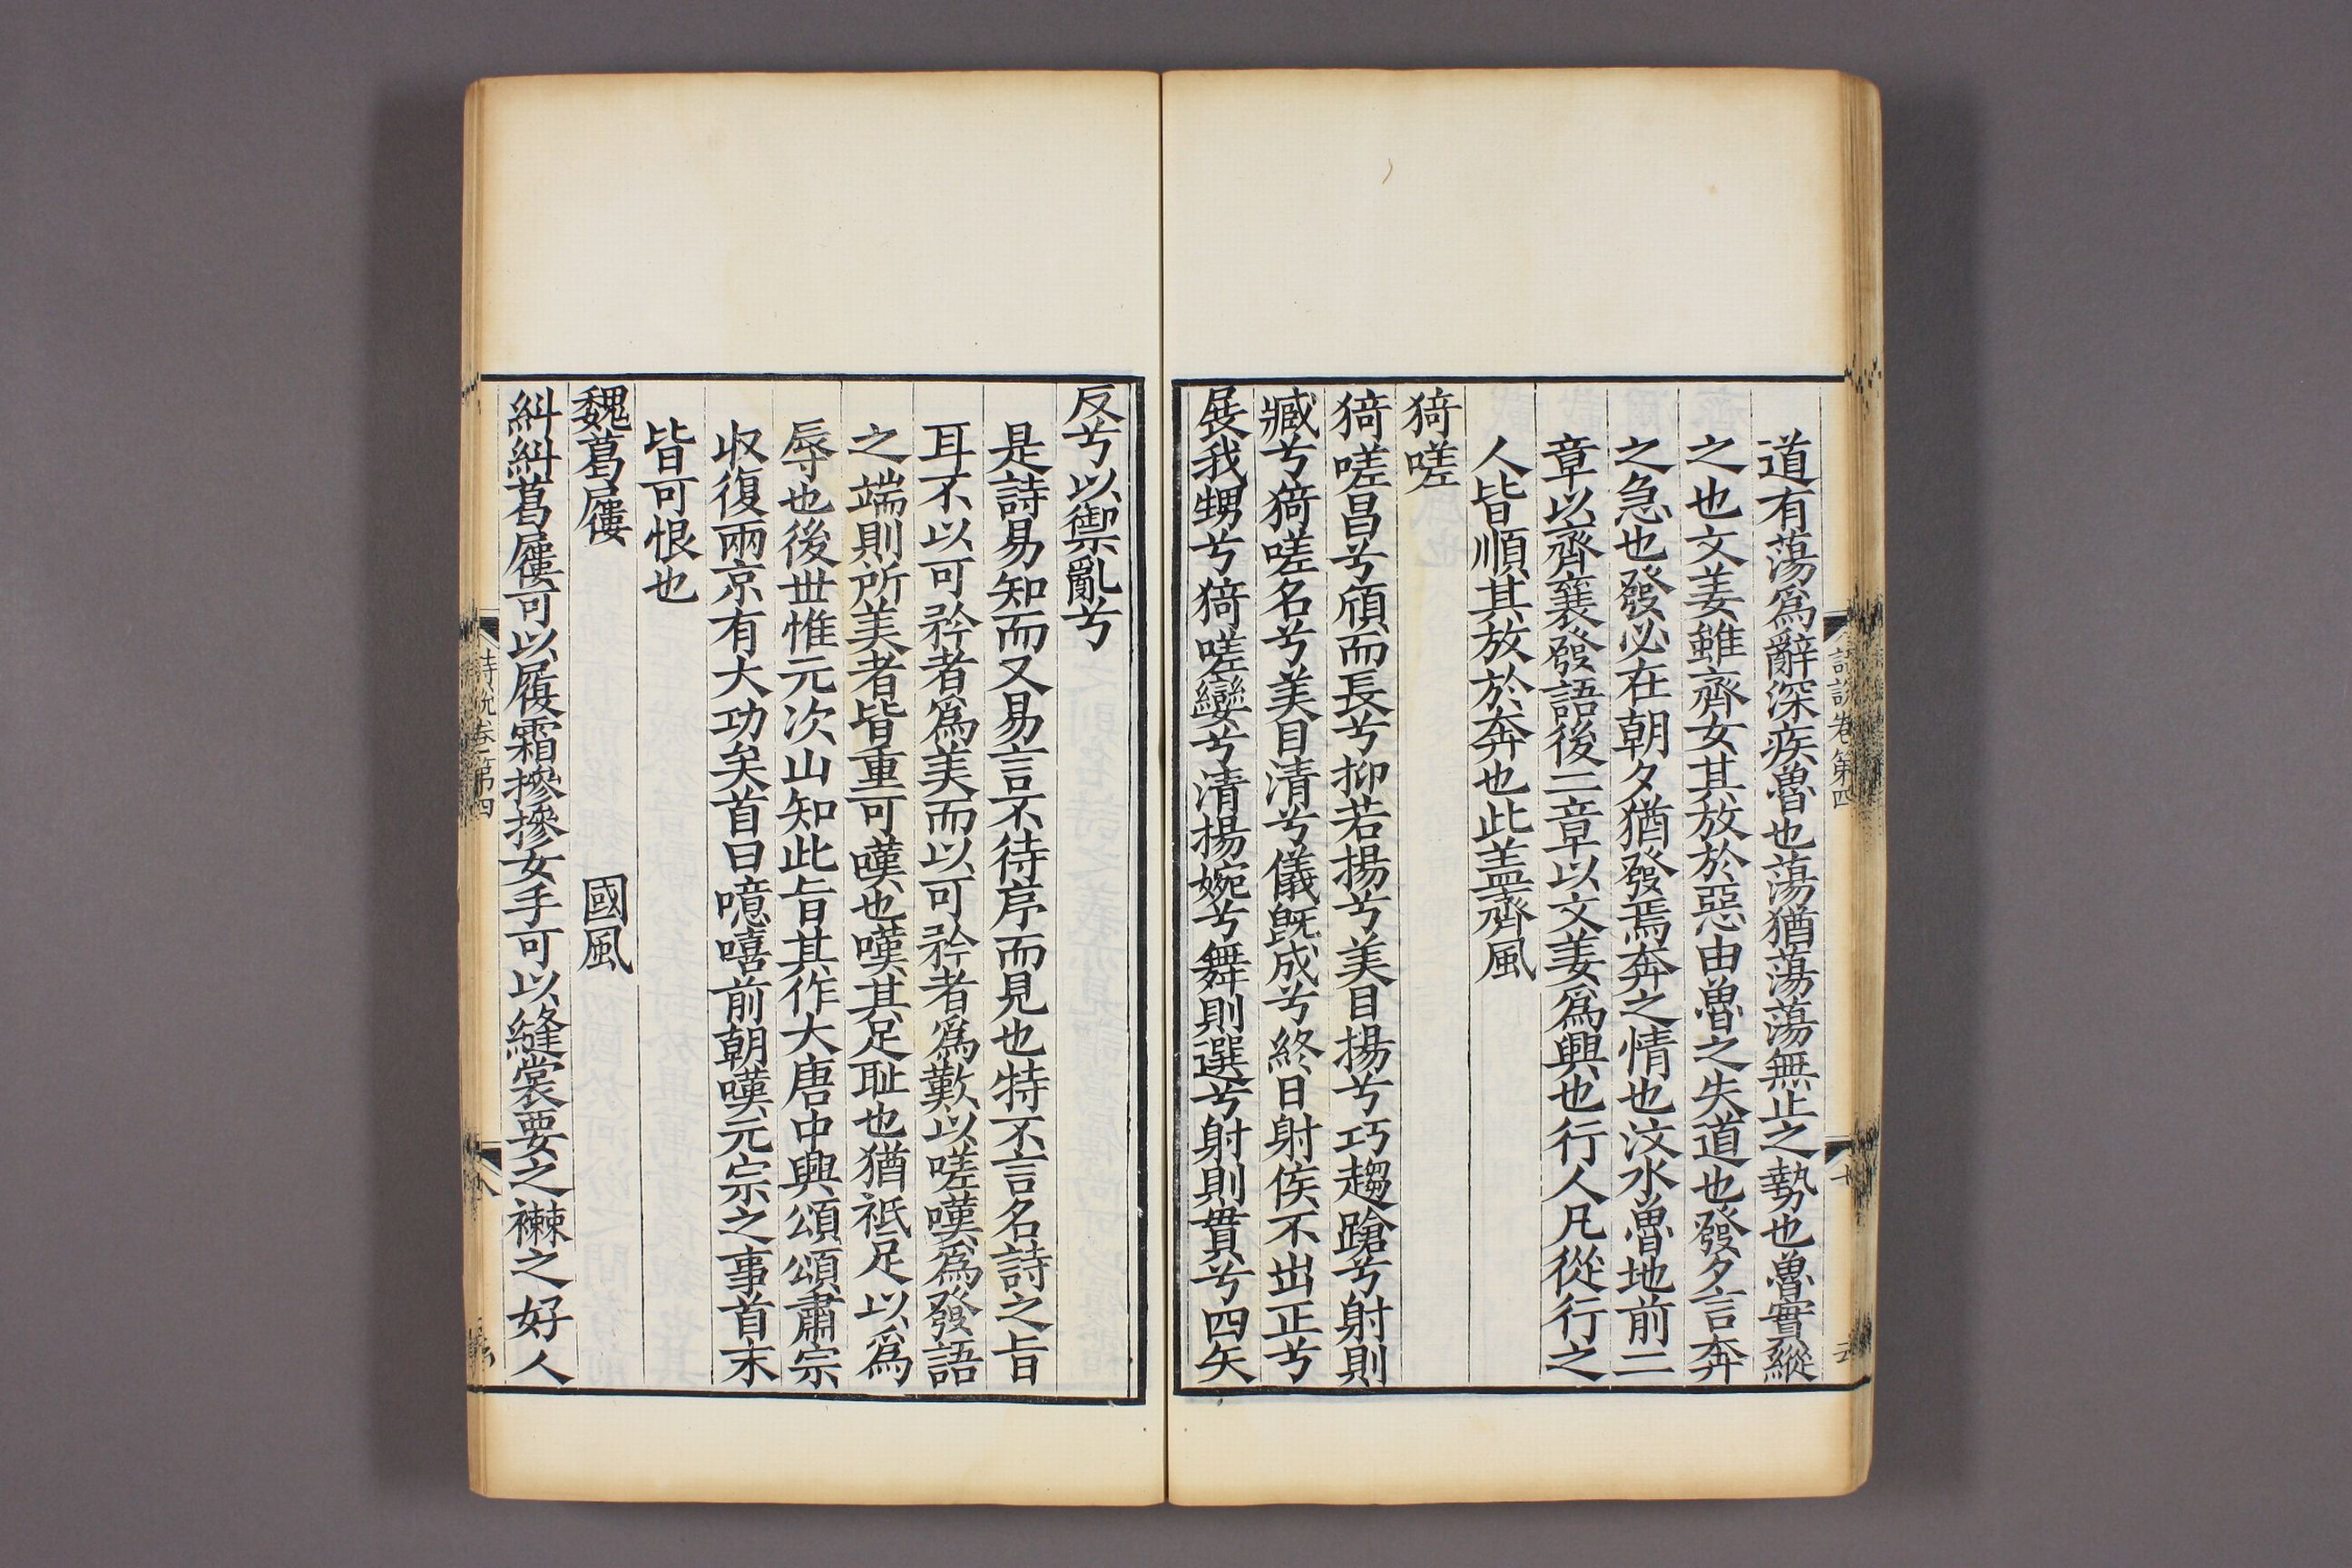 道有蕩爲辭深疾魯也蕩猶蕩蕩無止之勢也魯實縱
之也文姜雖齊女其放於惡由魯之失道也發夕言奔
之急也發必在朝夕猶發焉奔之情也汶水魯地前二
章以齊襄發語後二章以文姜爲興也行人凡從行之
人皆順其放於奔也此盖齊風
猗嗟
猗嗟昌兮頎而長兮抑若揚兮美目揚兮巧趨蹌兮射則
臧兮猗嗟名兮美目清兮儀旣成兮終日射侯不出正兮
展我甥兮猗嗟孌兮清揚婉兮舞則選兮射則貫兮四矢
詩說卷第四
反兮以禦亂兮
是詩易知而又易言不待序而見也特不言名詩之旨
耳不以可矜者爲美而以可矜者爲歎以嗟嘆爲發語
之端則所美者皆重可嘆也嘆其足耻也猶祗足以爲
辱也後世惟元次山知此旨其作大唐中興頌頌肅宗
収復兩京有大功矣首曰噫嘻前朝嘆元宗之事首末
皆可恨也
魏葛屨 國風
糾糾葛屨可以履霜摻摻女手可以縫裳要之襋之好人
詩說卷第四